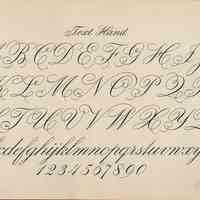 Text Hand.
A B C D E F G H I J
K L M N O P Q R
S T U V W X Y Z
abcdefghijklmnopqrstuvwxyz
1234567890